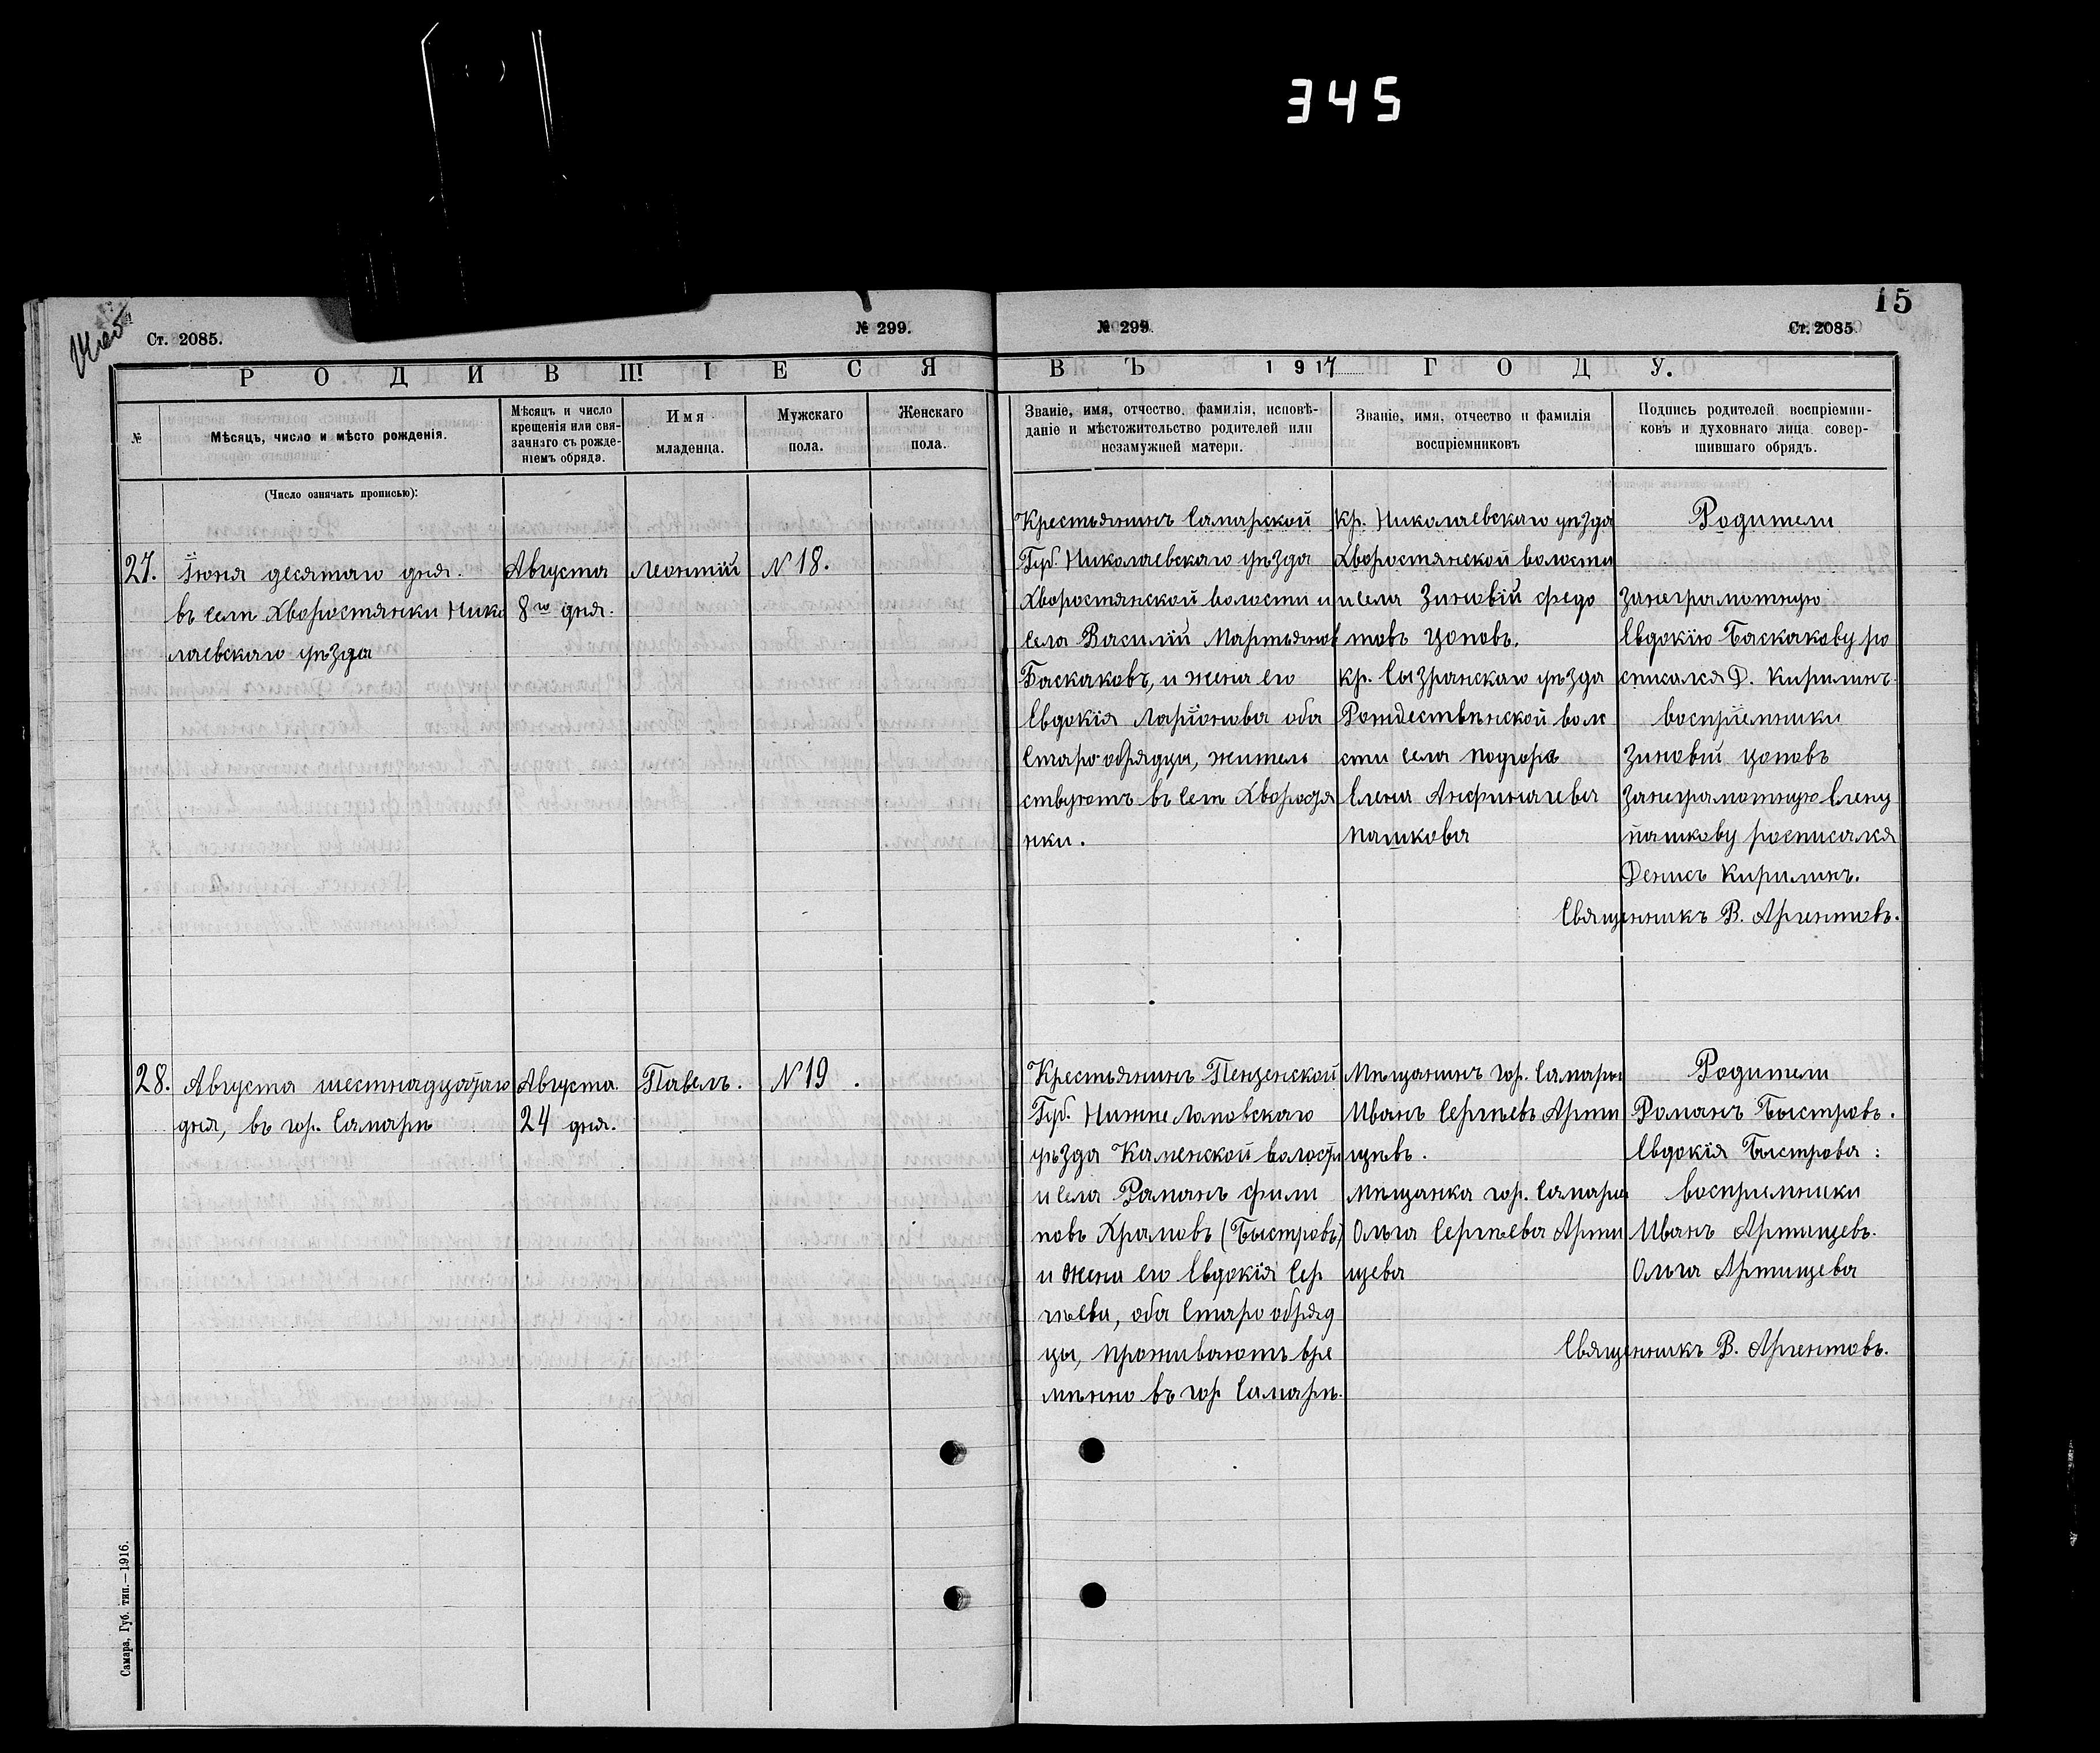 345
15
Ст. 2085.
№ 299.
№ 299.
Ст. 2085.
РОДИВШІЕСЯ ВЪ 1917 ГОДУ.
№
Мѣсяцъ, число и мѣсто рожденія.
Мѣсяцъ и число
крещенія или свя-
заннаго съ рожде-
ніемъ обряда.
Имя
младенца.
Мужскаго
пола.
Женскаго
пола.
Званіе, имя, отчество, фамилія, исповѣ-
даніе и мѣстожительство родителей или
незамужней матери.
Званіе, имя, отчество и фамилія
воспріемниковъ
Подпись родителей воспріемни-
ковъ и духовнаго лица совер-
шившаго обрядъ.
(Число означать прописью):
27.
Іюня десятаго дня.
въ селѣ Хворостянки Нико
лаевскаго уѣзда
Августа
8го дня.
Леонтій
N 18.
Крестьянинъ Самарской
Губ. Николаевскаго уѣзда
Хворостянской волости и
села Василій Мартьянов
Баскаковъ, и жена его
Евдокія Ларіонова оба
Старообрядцы, житель
ствуютъ въ селѣ Хворостя
нки.
Кр. Николаевскаго уѣзда
Хворостянской волости
и села Зиновій Федо
товъ Цоповъ.
Кр. Сызранскаго уѣзда
Рождественской воло
сти села Подгоръ
Елена Анфиногева
Пашкова
Родители
Занеграмотную
Евдокію Баскакову ро
списался Д. Кирилинъ.
воспріемники
Зиновій Цоповъ
Занеграмотную Елену
Пашкову росписался
Денисъ Кирилинъ.
Священникъ В. Аргентовъ.
28.
Августа шестнадцатаго
дня, въ гор. Самарѣ
Августа
24 дня.
Павелъ.
N 19.
Крестьянинъ Пензенской
Губ. Нижнеломовскаго
уѣзда Каменской волости
и села Романъ Фили
повъ Храмовъ (Быстровъ)
и жена его Евдокія Сер
гѣева, оба Старообряд
цы, проживаютъ вре
мѣнно въ гор. Самарѣ.
Мѣщанинъ гор. Самары
Иванъ Сергѣевъ Арти
щевъ.
Мѣщанка гор. Самары
Ольга Сергѣева Арти
щева
Родители
Романъ Быстровъ.
Евдокія Быстрова:
воспріемники
Иванъ Артищевъ.
Ольга Артищева
Священникъ В. Аргентовъ.
Самара, Губ. тип.—1916.